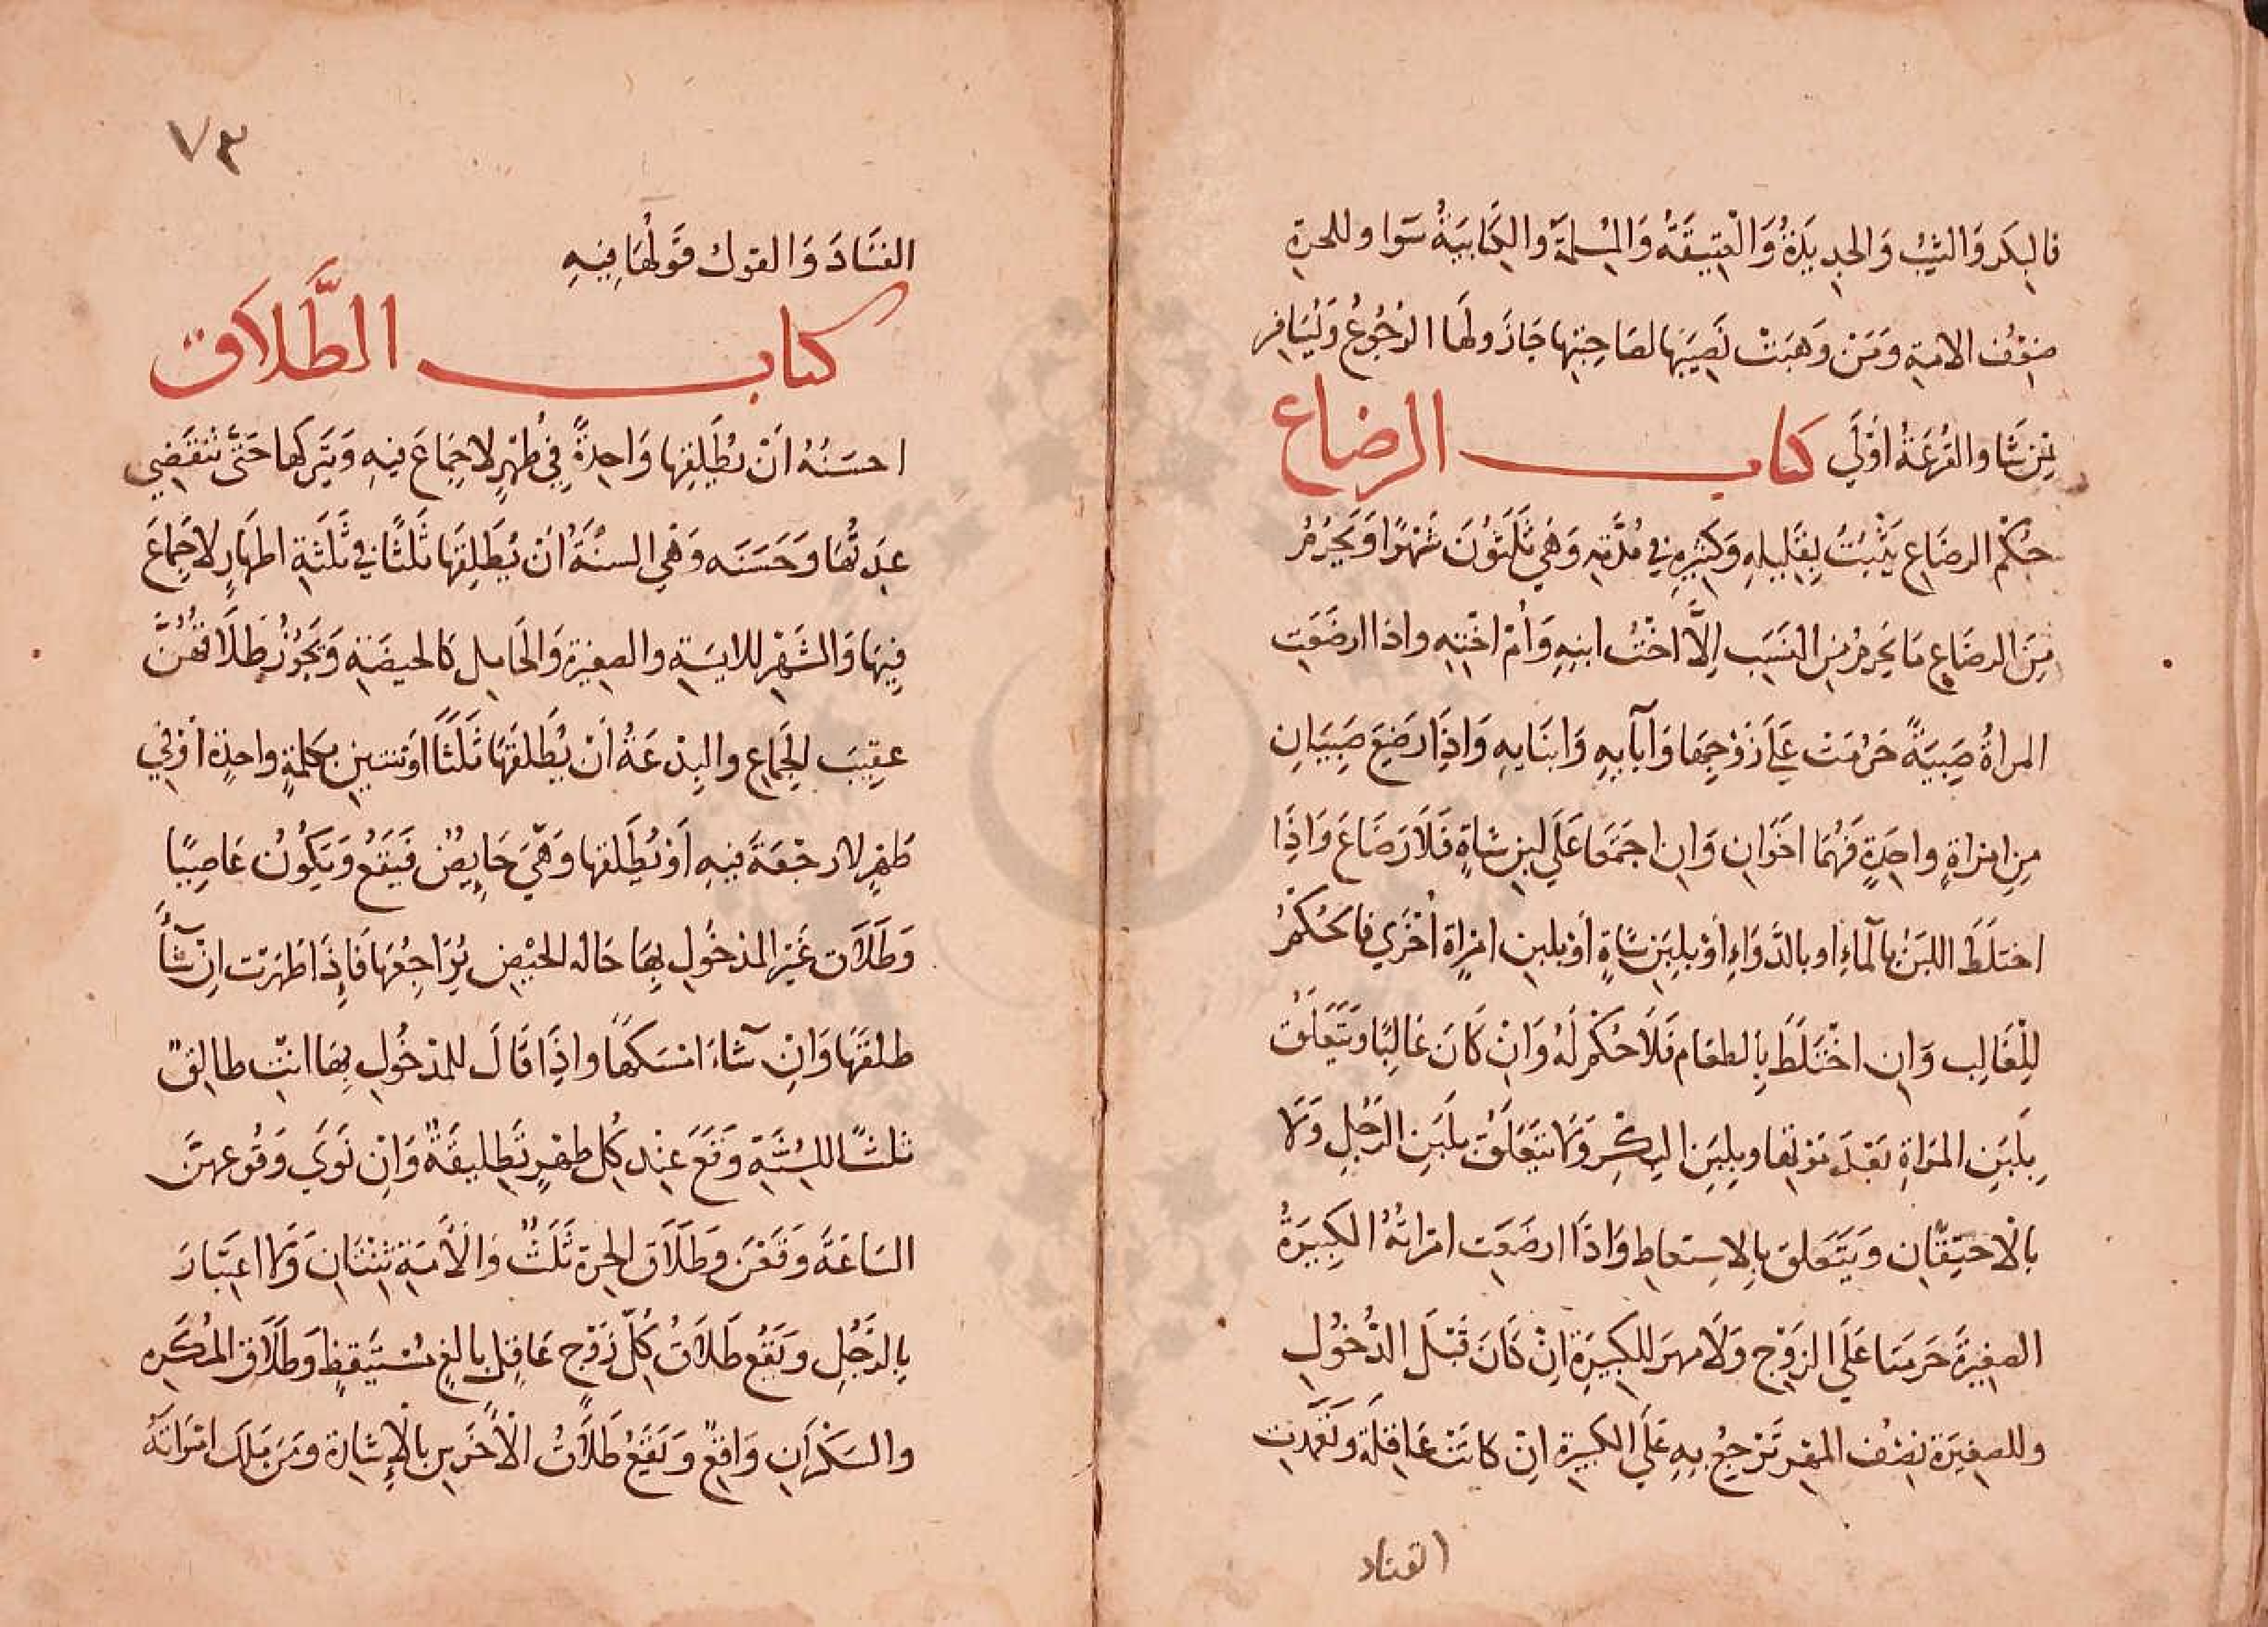 فالبكر وَالثيّبُ وَالجدِيدَةُ وَالْعَتِيقَةُ وَالمُسْلمَة وَالكِتَابيَةُ سَوا وللحرة
ضِعْفُ الامةِ وَمَنْ وَهَبَتْ نَصِيبَهَا لصَاحِبَتِها جَازَ ولهَا الرُجُوعُ وَيُسَافِر
بمَنْ شَا وَالقُرعَةُ أَوْلَي كتاب الرضاع
حُكْمُ الرضَاع يَثْبُتُ بِقَلِيلِهِ وَكَثِيرِهِ فِي مُدَّتِهِ وَهِيَ ثَلَثونَ شَهْرًا وَيَحْرُمُ
مِنَ الرضَاعِ مَا يَحرمُ مِنَ النسَبِ اِلَّا اخْتُ ابنِهِ وَأُمْ اخْتِهِ واذا ارضَعَتِ
المراةُ صَبِيَةً حَرُمَتْ عَلَي زَوْجِهَا وَآبَآيِهِ وَابنَايهِ وَاِذَا رَضِعَ صَبِيَانِ
مِنِ امْرَاةٍ واحِدَةٍ فَهُمَا اخَوَانِ وَاِنِ اجتمَعَا عَلَي لَبَنِ شاةٍ فَلَا رَضَاعَ وَاِذَا
اختَلَطَ اللبَنُ بالمآءِ اَو بالدَّوَاءِ اَوْ بلبَنِ شاةٍ اَوْ بلبنِ امْرَاةٍ أُخْرَي فالحُكْمُ
لِلْغَالِبِ وَاِنِ اخْتَلَطَ بِالطعَام فَلَا حُكْمَ لَهُ وَاِنْ كَانَ غالِبًا وَيَتَعَلَقُ
بِلَبَنِ المَرَاةِ بَعْدَ مَوْتِهَا وبِلبَنِ البِكْرِ وَلَا يَتَعَلَقُ بلَبَنِ الرَجُلِ وَلَا
بِالْاحتِقَانِ ويَتَعَلق بِالاِستعاطِ وَاذَا ارضَعَتِ امْرَاتُهُ الكَبِيرَةُ
الصغِيرَةَ حَرمتا عَلَي الزَوْجِ وَلَا مهرَ للكبِيرَةِ اِنْ كَانَ قَبْلَ الدُخُولِ
وللصغِيَرةِ نِصْفُ المَهْرِ يَرْجِعُ بِهِ عَلَي الكبيرةِ اِنْ كانَتْ عَاقِلَةً وتَعَمَّدتِ
الفساد
٧٣
الفسَادَ وَالقول قَولُهَا فِيهِ
كتاب الطَّلَاق
احسَنُهُ اَنْ يُطَلِقَها وَاحِدَةً فِي طُهْرٍ لا جِمَاعَ فيهِ وَيَتركَها حَتَّي تَنْقَضِي
عِدتُهَا وَحَسَنَه وَهْيَ السنُةُ اَنْ يُطَلِقَهَا ثَلَثًا فِي ثَلَثَةِ اطهَارٍ لا جِمَاعَ
فِيهَا وَالشَهْرُ للايسَةِ والصغِيَرةِ وَالحَامِلِ كالحيضَةِ وَيَجُوْزُ طَلَاقُهُنَّ
عقِيبَ الجِمَاعِ والبِدْعَةُ اَنْ يُطَلقَهَا ثَلَثًا اَوْ ثنتَينِ بكلمةٍ واحدَةٍ اَوْ فِي
طَهْرٍ لا رجْعَةَ فِيهِ اَوْ يُطَلقَها وَهْيَ حَايِضٌ فَيقَعُ وَيَكُونُ عَاصِيًا
وَطَلَاق غَيْرِ المدْخُولِ بِهَا حَالَة الحيْضِ يُرَاجِعُهَا فَاِذَا طَهرَت اِنْ شآءَ
طلقَهَا وَاِنْ شآءَ امْسَكَهَا واذَا قَالَ للمدْخُولِ بِهَا انتِ طالِقٌ
ثلثًا للسُنَّةِ وقَعَ عِنْدَ كُل طهْرٍ تَطلِيقَةٌ وَاِنْ نَوَي وَقُوعَهنّ
السَاعَةَ وَقَعْنَ وطَلَاق الحرةِ ثَلَثٌ وَالْاَمَةِ ثِنْتَانِ وَلا اعتِبَارَ
بِالرَجُلِ وَيَقَعُ طَلَاقُ كُلِّ زَوْجٍ عَاقِلٍ بالغٍ مُسْتَيقظٍ وَطَلَاقُ المُكرَهِ
والسَكْرَانِ وَاقِعٌ وَيَقَعُ طَلَاقُ الْاَخْرَسِ بالْاِشارَةِ ومَنْ مَلَكَ امْرَاتَهُ